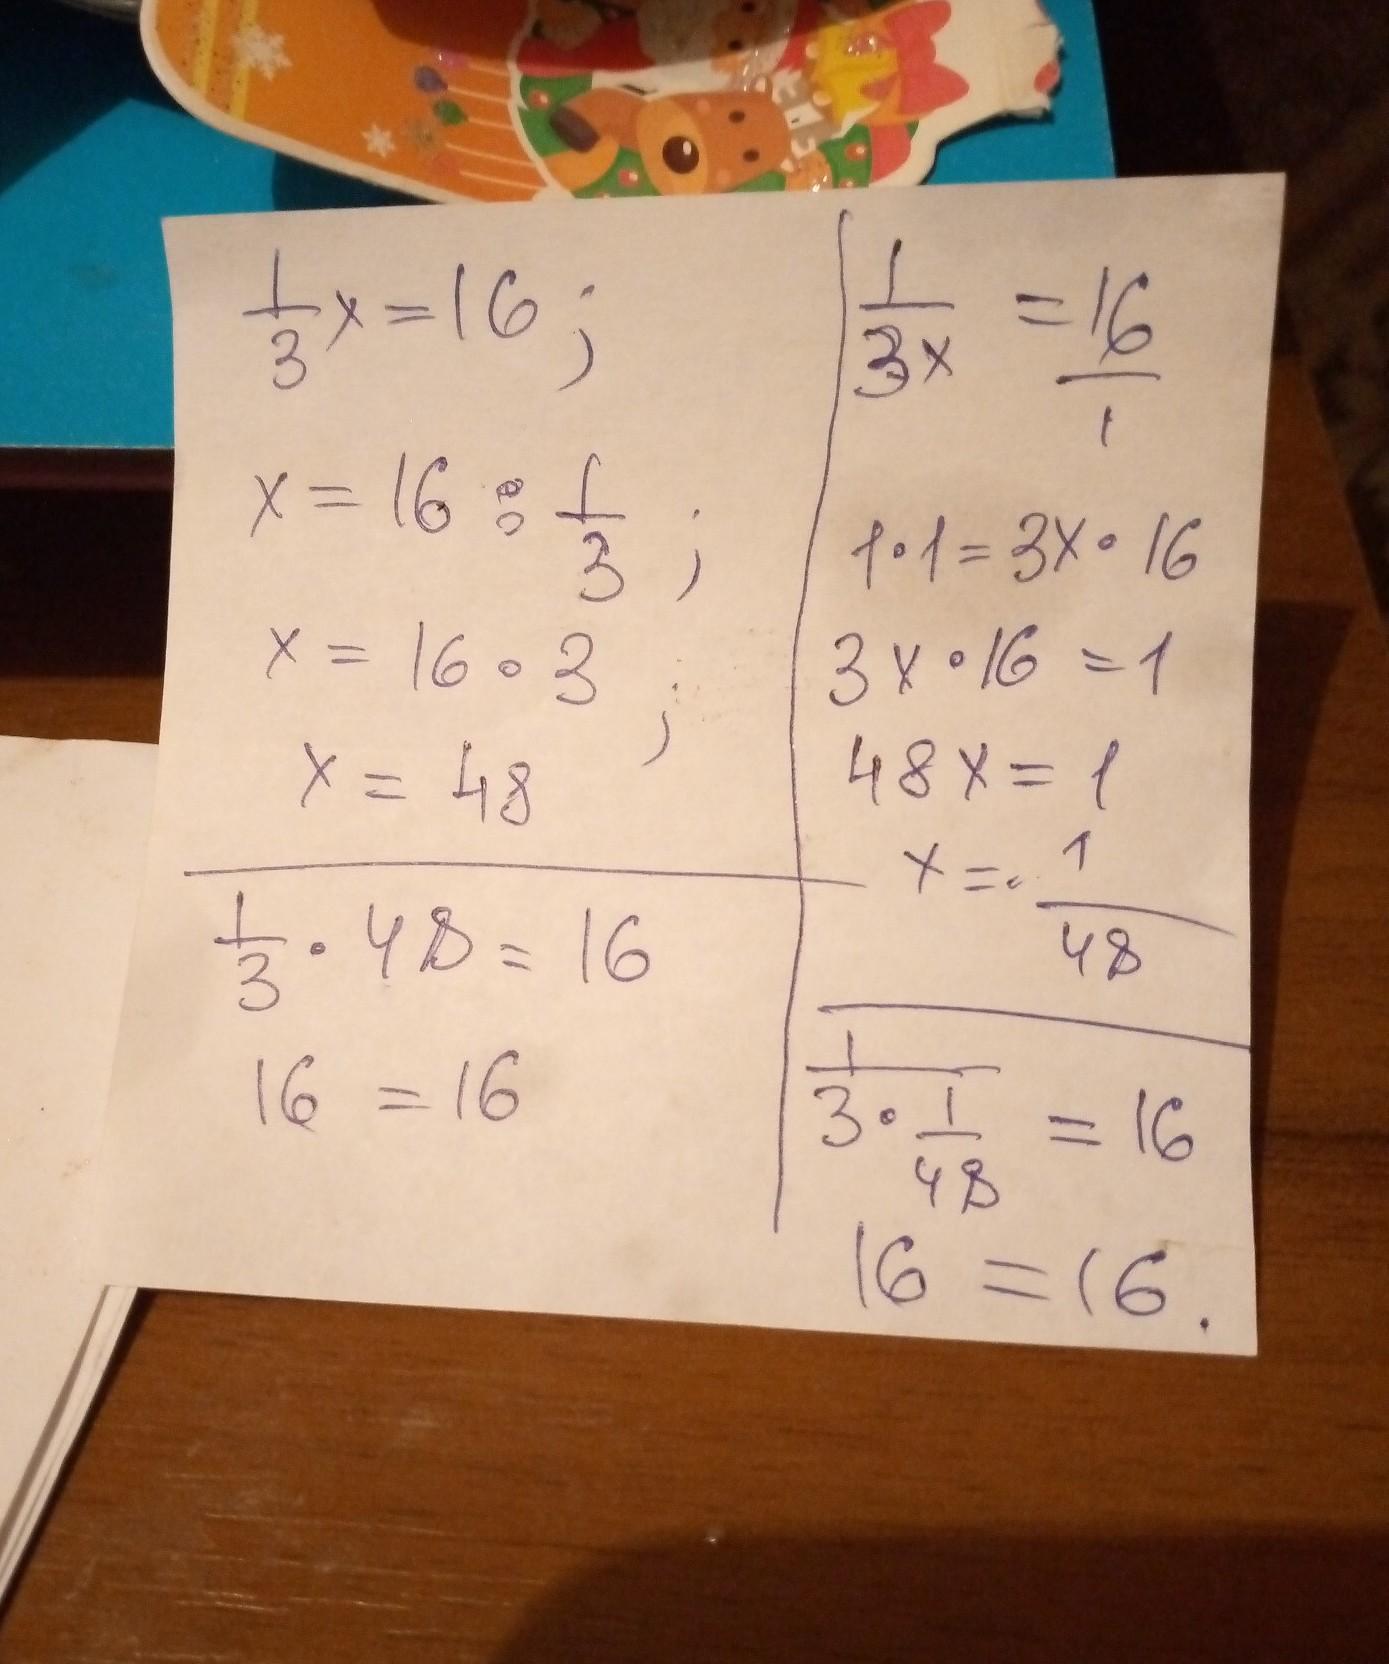 1/3 x = 16 ;
x = 16 : 1/3 ;
x = 16 • 3 ;
x = 48
1/3 • 48 = 16
16 = 16
1/3x = 16/1
1 • 1 = 3x • 16
3x • 16 = 1
48x = 1
x = 1/48
1/(3 • 1/48) = 16
16 = 16 .